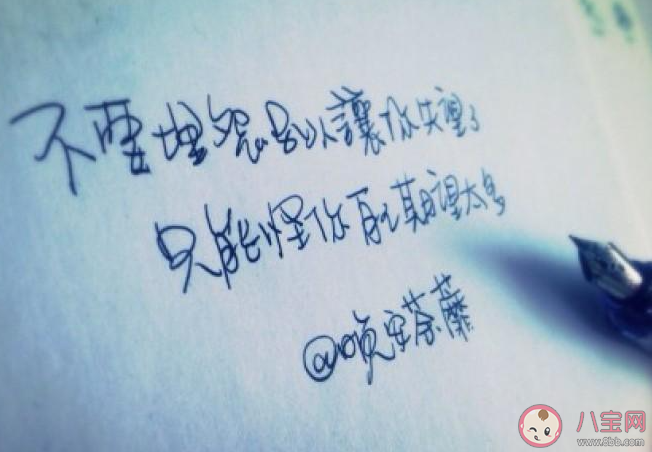 不要埋怨别人讓你失望了
只能怪你自己期望太多
@
荼蘼
八宝网
www.8bb.com